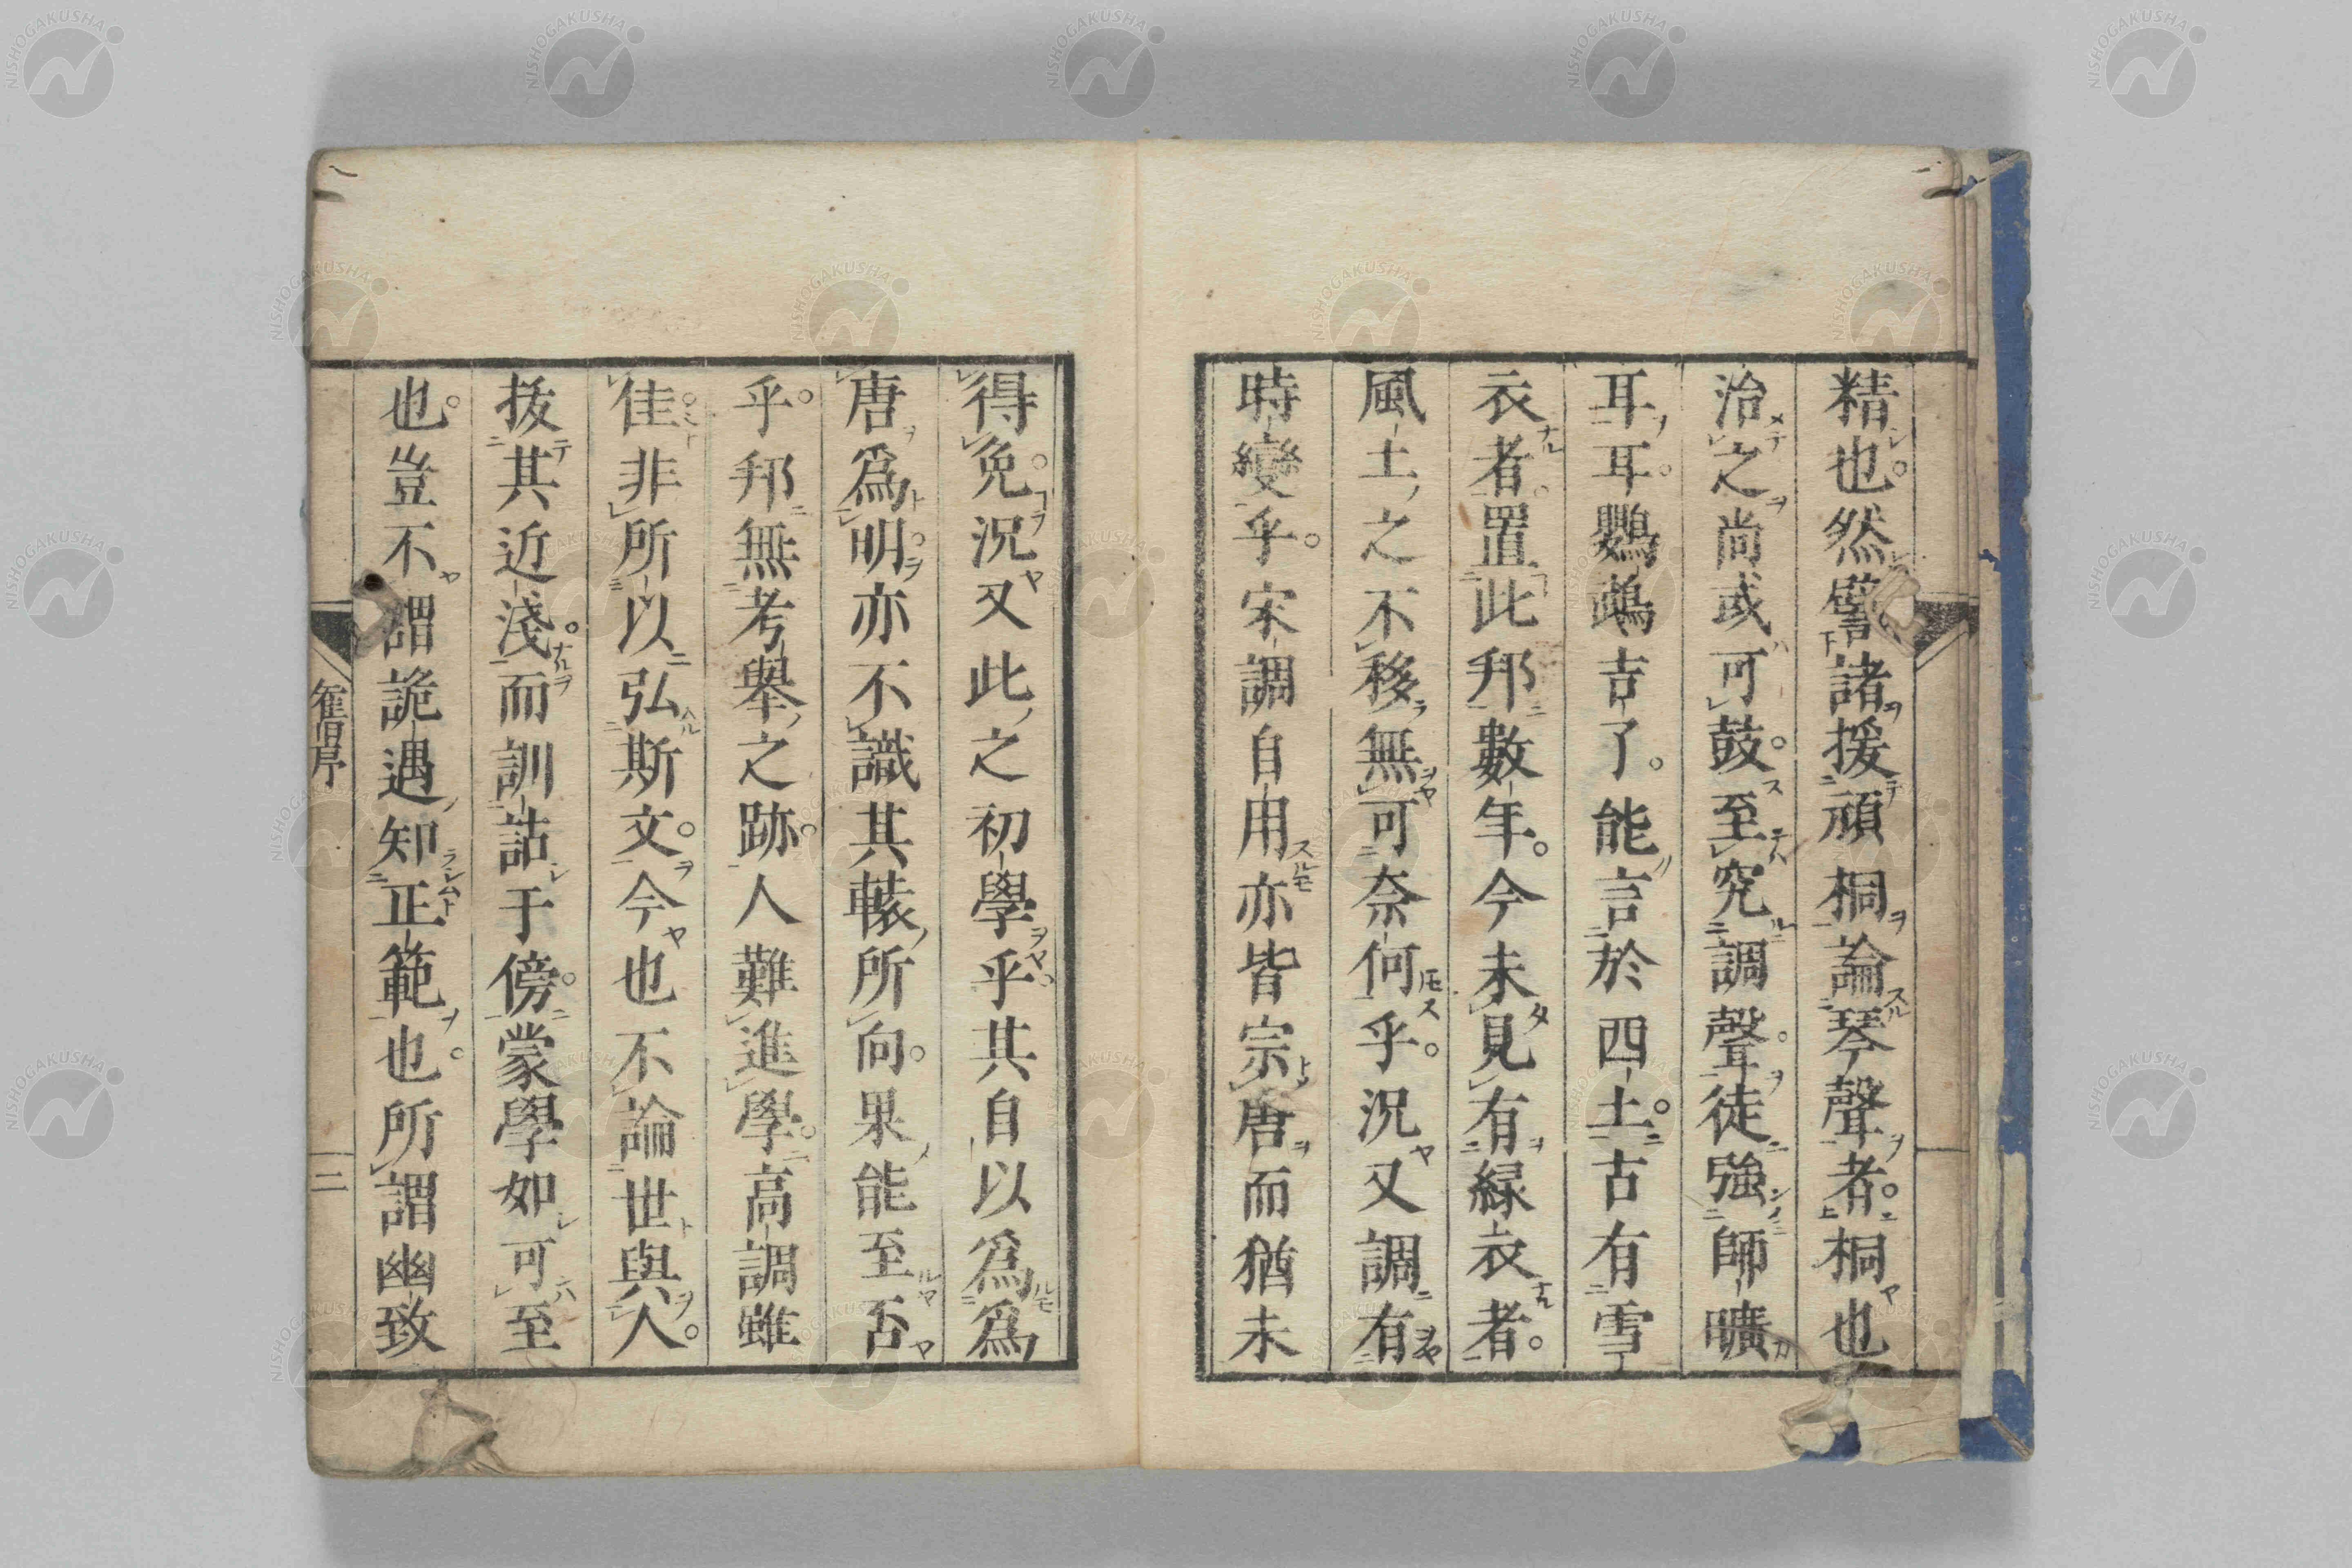 精也。然譬諸援頑桐論琴聲者。桐也
治之尚或可鼓。至究調聲。徒強師曠
耳耳。鸚鵡吉了。能言於四土。古有雪
衣者。置此邦數年。今未見有緑衣者。
風土之不移無可奈何乎。況又調有
時變乎。宋調自用亦皆宗唐而猶未
得免。況又此之初學乎其自以爲爲
唐爲明。亦不識其轅所向。果能至否
乎。邦無考舉之跡。人難進學。高調雖
佳。非所以弘斯文。今也不論世與人。
拔其近淺。而訓詁于傍。蒙學如可至
也。豈不謂詭遇知正範也。所謂幽致
二
NISHOGAKUSHA